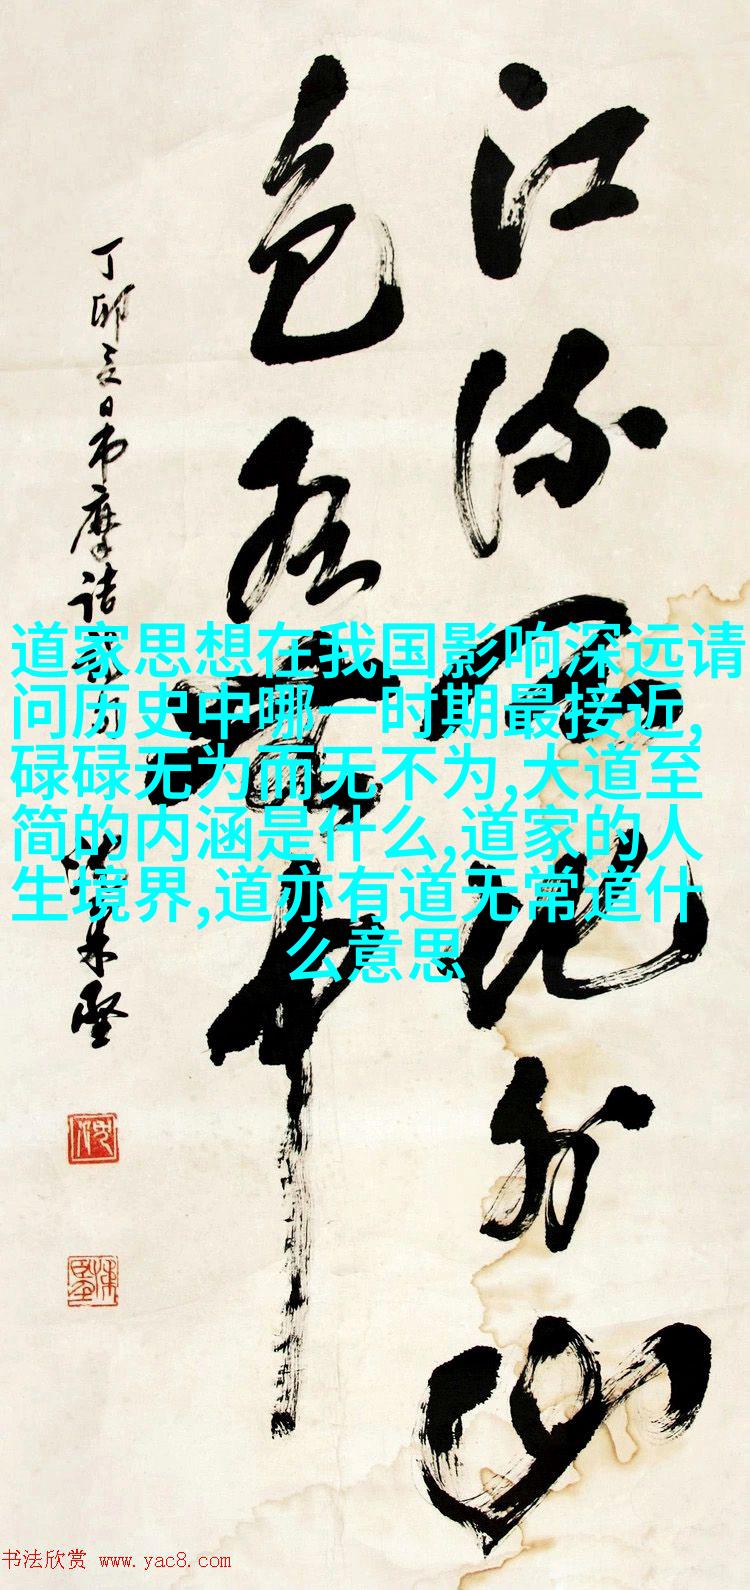 江流天地外山
色有無中
丁卯夏日书摩诘
道家思想在我国影响深远请
问历史中哪一时期最接近,
碌碌无为而无不为,大道至
简的内涵是什么,道家的人
生境界,道亦有道无常道什
么意思
书法欣赏 www.yac8.com